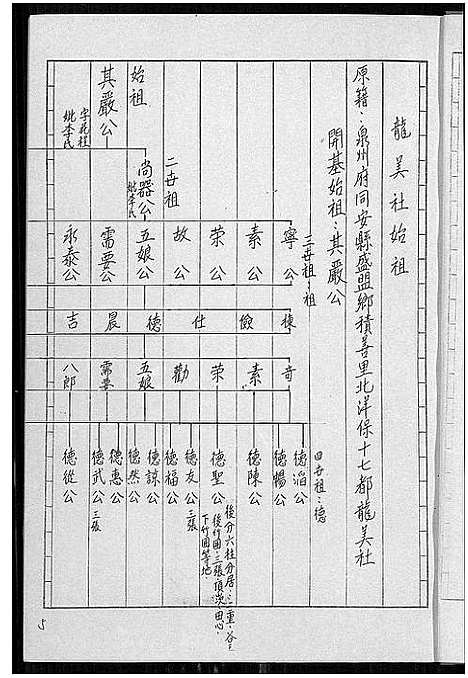 龍美社始祖
原籍：泉州府同安縣盛盟鄉積善里北洋保十七都龍美社
開基始祖：其嚴公
三世祖：祖
四世祖：德
寧公
素公
荣公
故公
二世祖
尚器公
妣李氏
五娘公
需要公
永泰公
始祖
其嚴公
妣李氏
棟
儉
仕
德
晨
吉
奇
素
荣
勸
五娘
需要
八郎
德滔公
德暢公
德陳公
德聖公
後分六柱分居：二重
德友公
三張
德福公
德諒公
德然公
德惠公
德武公
三張
德從公
5